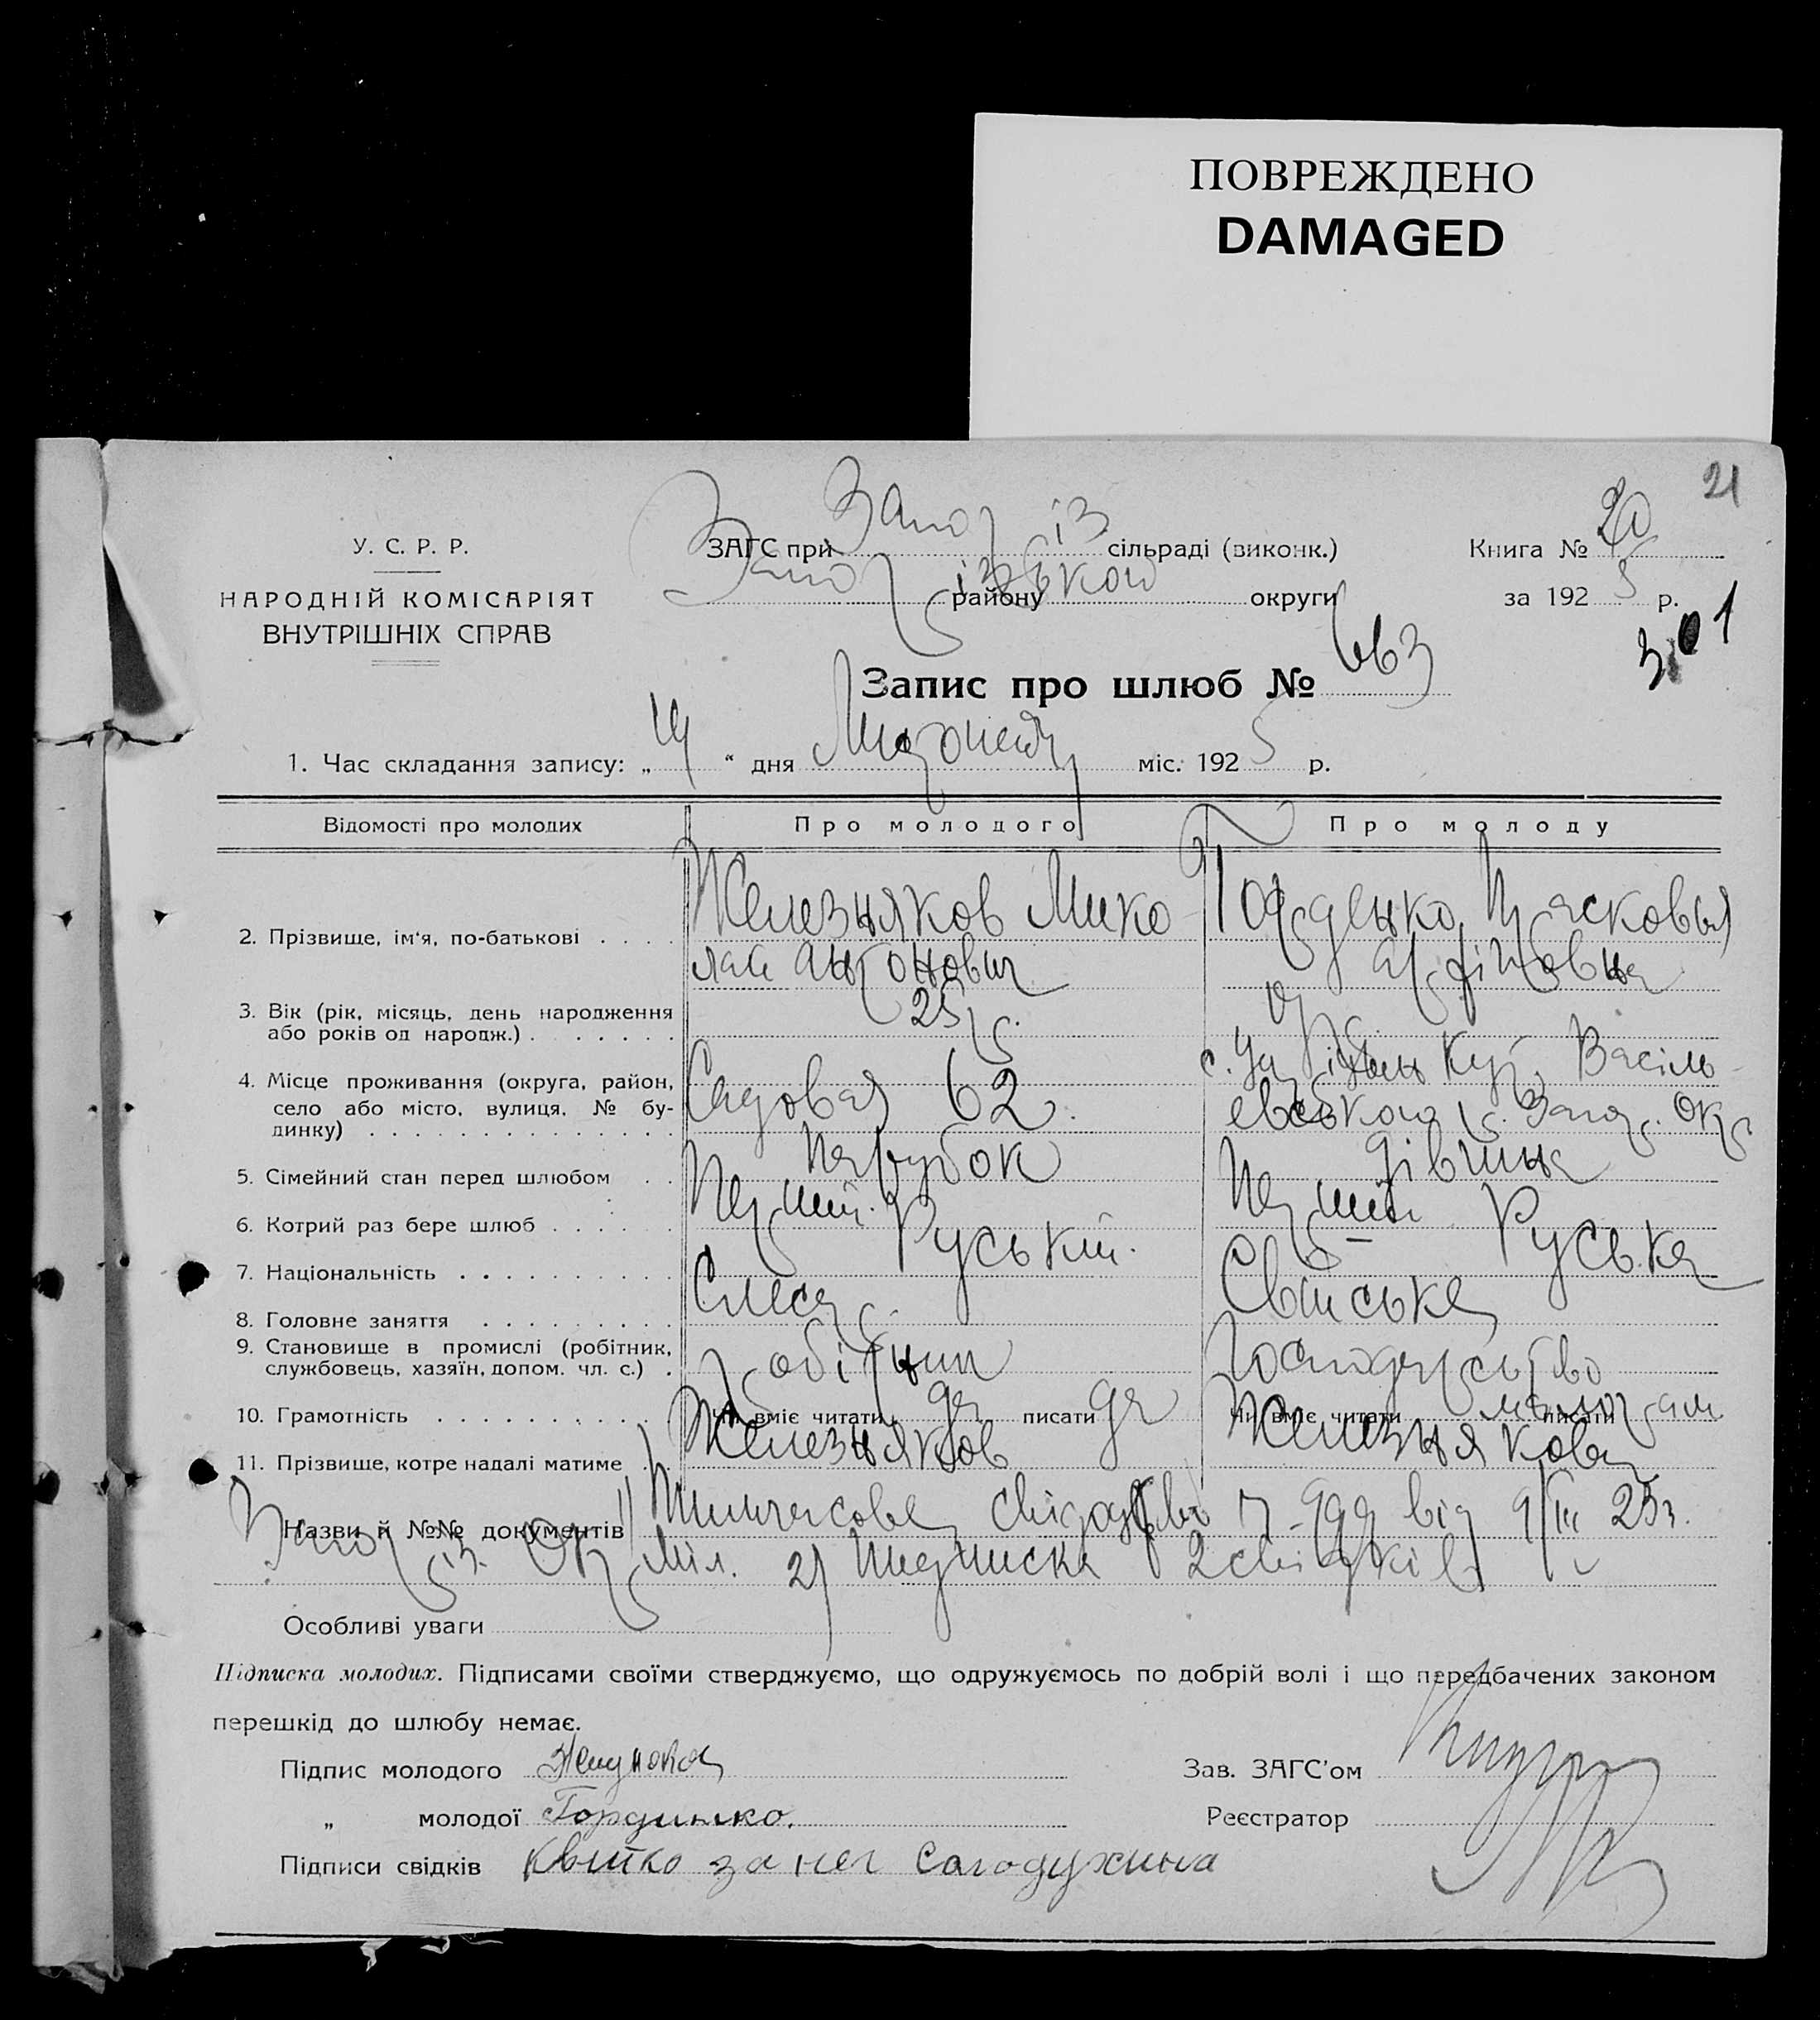 ПОВРЕЖДЕНО
DAMAGED
21
У. С. Р. Р.
НАРОДНІЙ КОМІСАРІЯТ
ВНУТРІШНІХ СПРАВ
ЗАГС при Запоріз сільраді (виконк.)
Запорізького району округи
Книга № 20
за 192 5 р.
301
Запис про шлюб №
1. Час складання запису: „ “ дня міс. 192 5 р.
Відомості про молодих Про молодого Про молоду
2. Прізвище, ім'я, по-батькові . . . . Железняков Мико Горденко Прасковья
лай Антонович
3. Вік (рік, місяць, день народження
або років од народж.) . . . . . . . 25 р.
4. Місце проживання (округа, район,
село або місто, вулиця, № бу-
динку) . . . . . . . . . . . . . . Садовая 62. с. Кут, Васіль
евського р. Запор. Окр
5. Сімейний стан перед шлюбом . . Парубок дівчина
6. Котрий раз бере шлюб . . . . . . Перший. Перший
7. Національність . . . . . . . . . . Руський. Руська
8. Головне заняття . . . . . . . . . Слесар Свійське
9. Становище в промислі (робітник,
службовець, хазяїн, допом. чл. с.) . робітник господарство
10. Грамотність . . . . . . . . . . Чи вміє читати да писати да Чи вміє читати писати малограм
11. Прізвище, котре надалі матиме . Железняков Железнякова
Назви й №№ документів 1) Тимчасове свідоцтво від 9/III 25 г.
Запоріз. Окр Міл. 2) Підписка 2 свідків
Особливі уваги
Підписка молодих. Підписами своїми стверджуємо, що одружуємось по добрій волі і що передбачених законом
перешкід до шлюбу немає.
Підпис молодого Зав. ЗАГС'ом
„ молодої Гординко. Реєстратор
Підписи свідків Квитко за нег Сагодухина